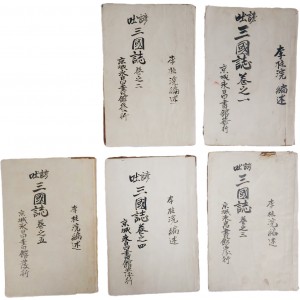 諺吐 三國誌 卷之二
李柱浣 編述
京城永昌書館發行
諺吐 三國誌 卷之一
李柱浣 編述
京城永昌書館發行
諺吐 三國誌 卷之五
李柱浣 編述
京城永昌書館發行
諺吐 三國誌 卷之四
李柱浣 編述
京城永昌書館發行
諺吐 三國誌 卷之三
李柱浣 編述
京城永昌書館發行